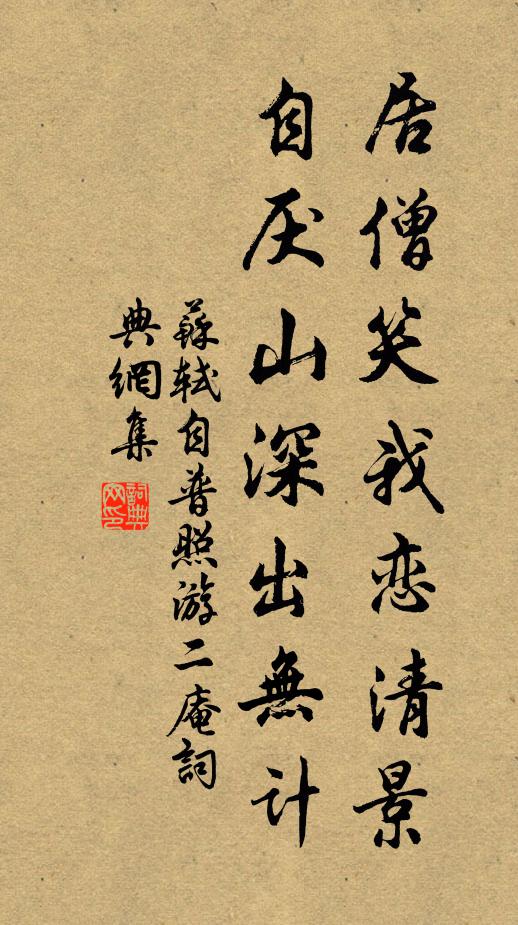 居僧笑我恋清景
自厌山深出無計
蘇軾自普照游二庵詞
典網集
詞典网印